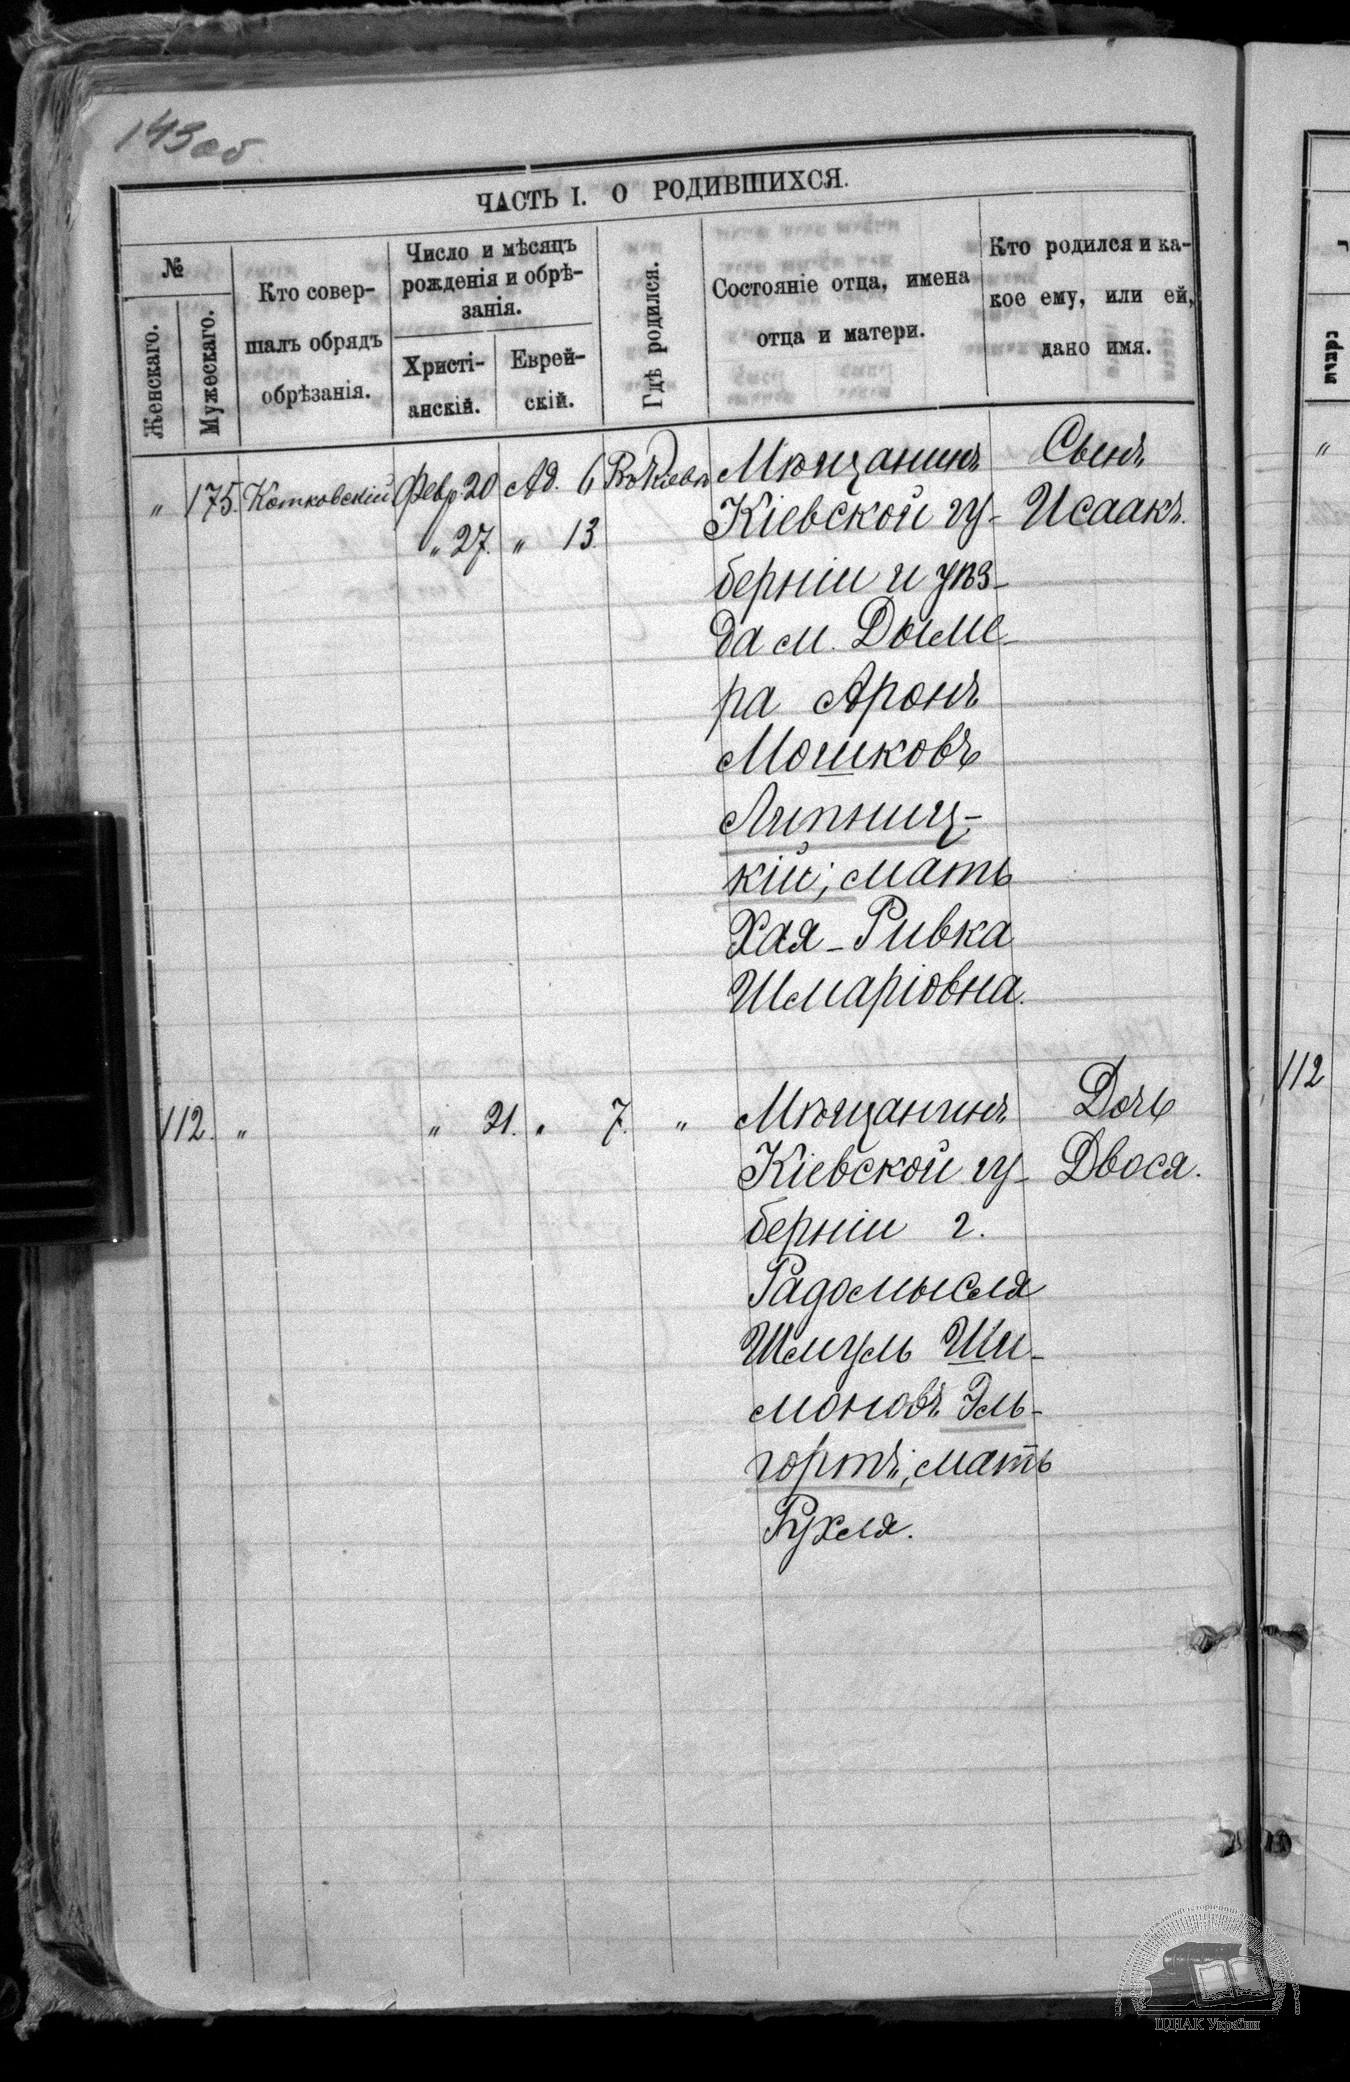 143об
ЧАСТЬ I. О РОДИВШИХСЯ.
№
Женскаго.
Мужескаго.
Кто совер-
шалъ обрядъ
обрѣзанія.
Число и мѣсяцъ
рожденія и обрѣ-
занія.
Христі-
анскій.
Еврей-
скій.
Гдѣ родился.
Состояніе отца, имена
отца и матери.
Кто родился и ка-
кое ему, или ей,
дано имя.
„ 175. Котковскій Февр. 20 Ад. 6 Въ Кіевѣ Мѣщанинъ Сынъ
„ 27. „ 13. Кіевской гу- Исаакъ.
берніи и уѣз-
да м. Дыме-
ра Аронъ
Мошковъ
Липниц-
кій; мать
Хая-Ривка
Шмаріовна.
112. „ „ 21. „ 7. „ Мѣщанинъ Дочь
Кіевской гу- Двося.
берніи г.
Радомысля
Шмуль Ши-
моновъ Эль-
гортъ; мать
Рухля.
„
112
ЦДІАК України